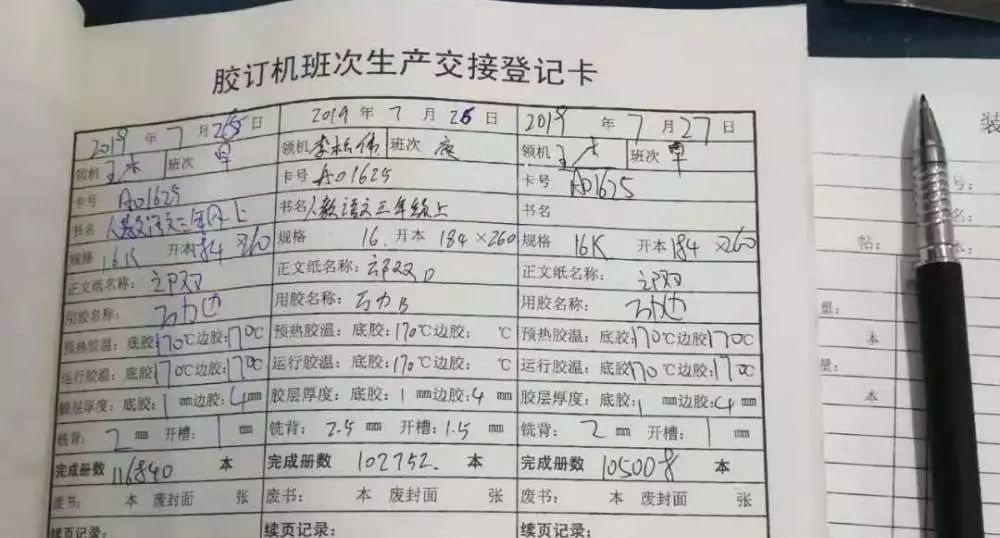 胶订机班次生产交接登记卡
2019 年 7 月 26 日
领机 王 班次 早
卡号 A01625
书名 人教语文三年级上
规格 16K 开本 184 ×260
正文纸名称:
用胶名称:
预热胶温:底胶:170℃边胶:170℃
运行胶温:底胶:170℃边胶:170℃
胶层厚度:底胶:1 mm边胶:4 mm
铣背:2 mm 开槽:1 mm
完成册数 116840 本
废书: 本 废封面 张
续页记录:
2019 年 7 月 26 日
领机 李松伟 班次 夜
卡号 A01625
书名 人教语文三年级上
规格 16. 开本 184×260
正文纸名称:
用胶名称:
预热胶温:底胶:170℃边胶: ℃
运行胶温:底胶:170℃边胶: ℃
胶层厚度:底胶:1 mm边胶:4 mm
铣背:2.5 mm 开槽:1.5 mm
完成册数 102752. 本
废书: 本 废封面 张
续页记录:
2019 年 7 月 27 日
领机 王 班次 早
卡号 A01625
书名
规格 16K 开本 184 ×260
正文纸名称:
用胶名称:
预热胶温:底胶:170℃边胶:170℃
运行胶温:底胶:170℃边胶:170℃
胶层厚度:底胶:1 mm边胶:4 mm
铣背:2 mm 开槽:1 mm
完成册数 105008 本
废书: 本 废封面 张
续页记录:
装
号:
名:
帖: 本:
量:
本
量:
本